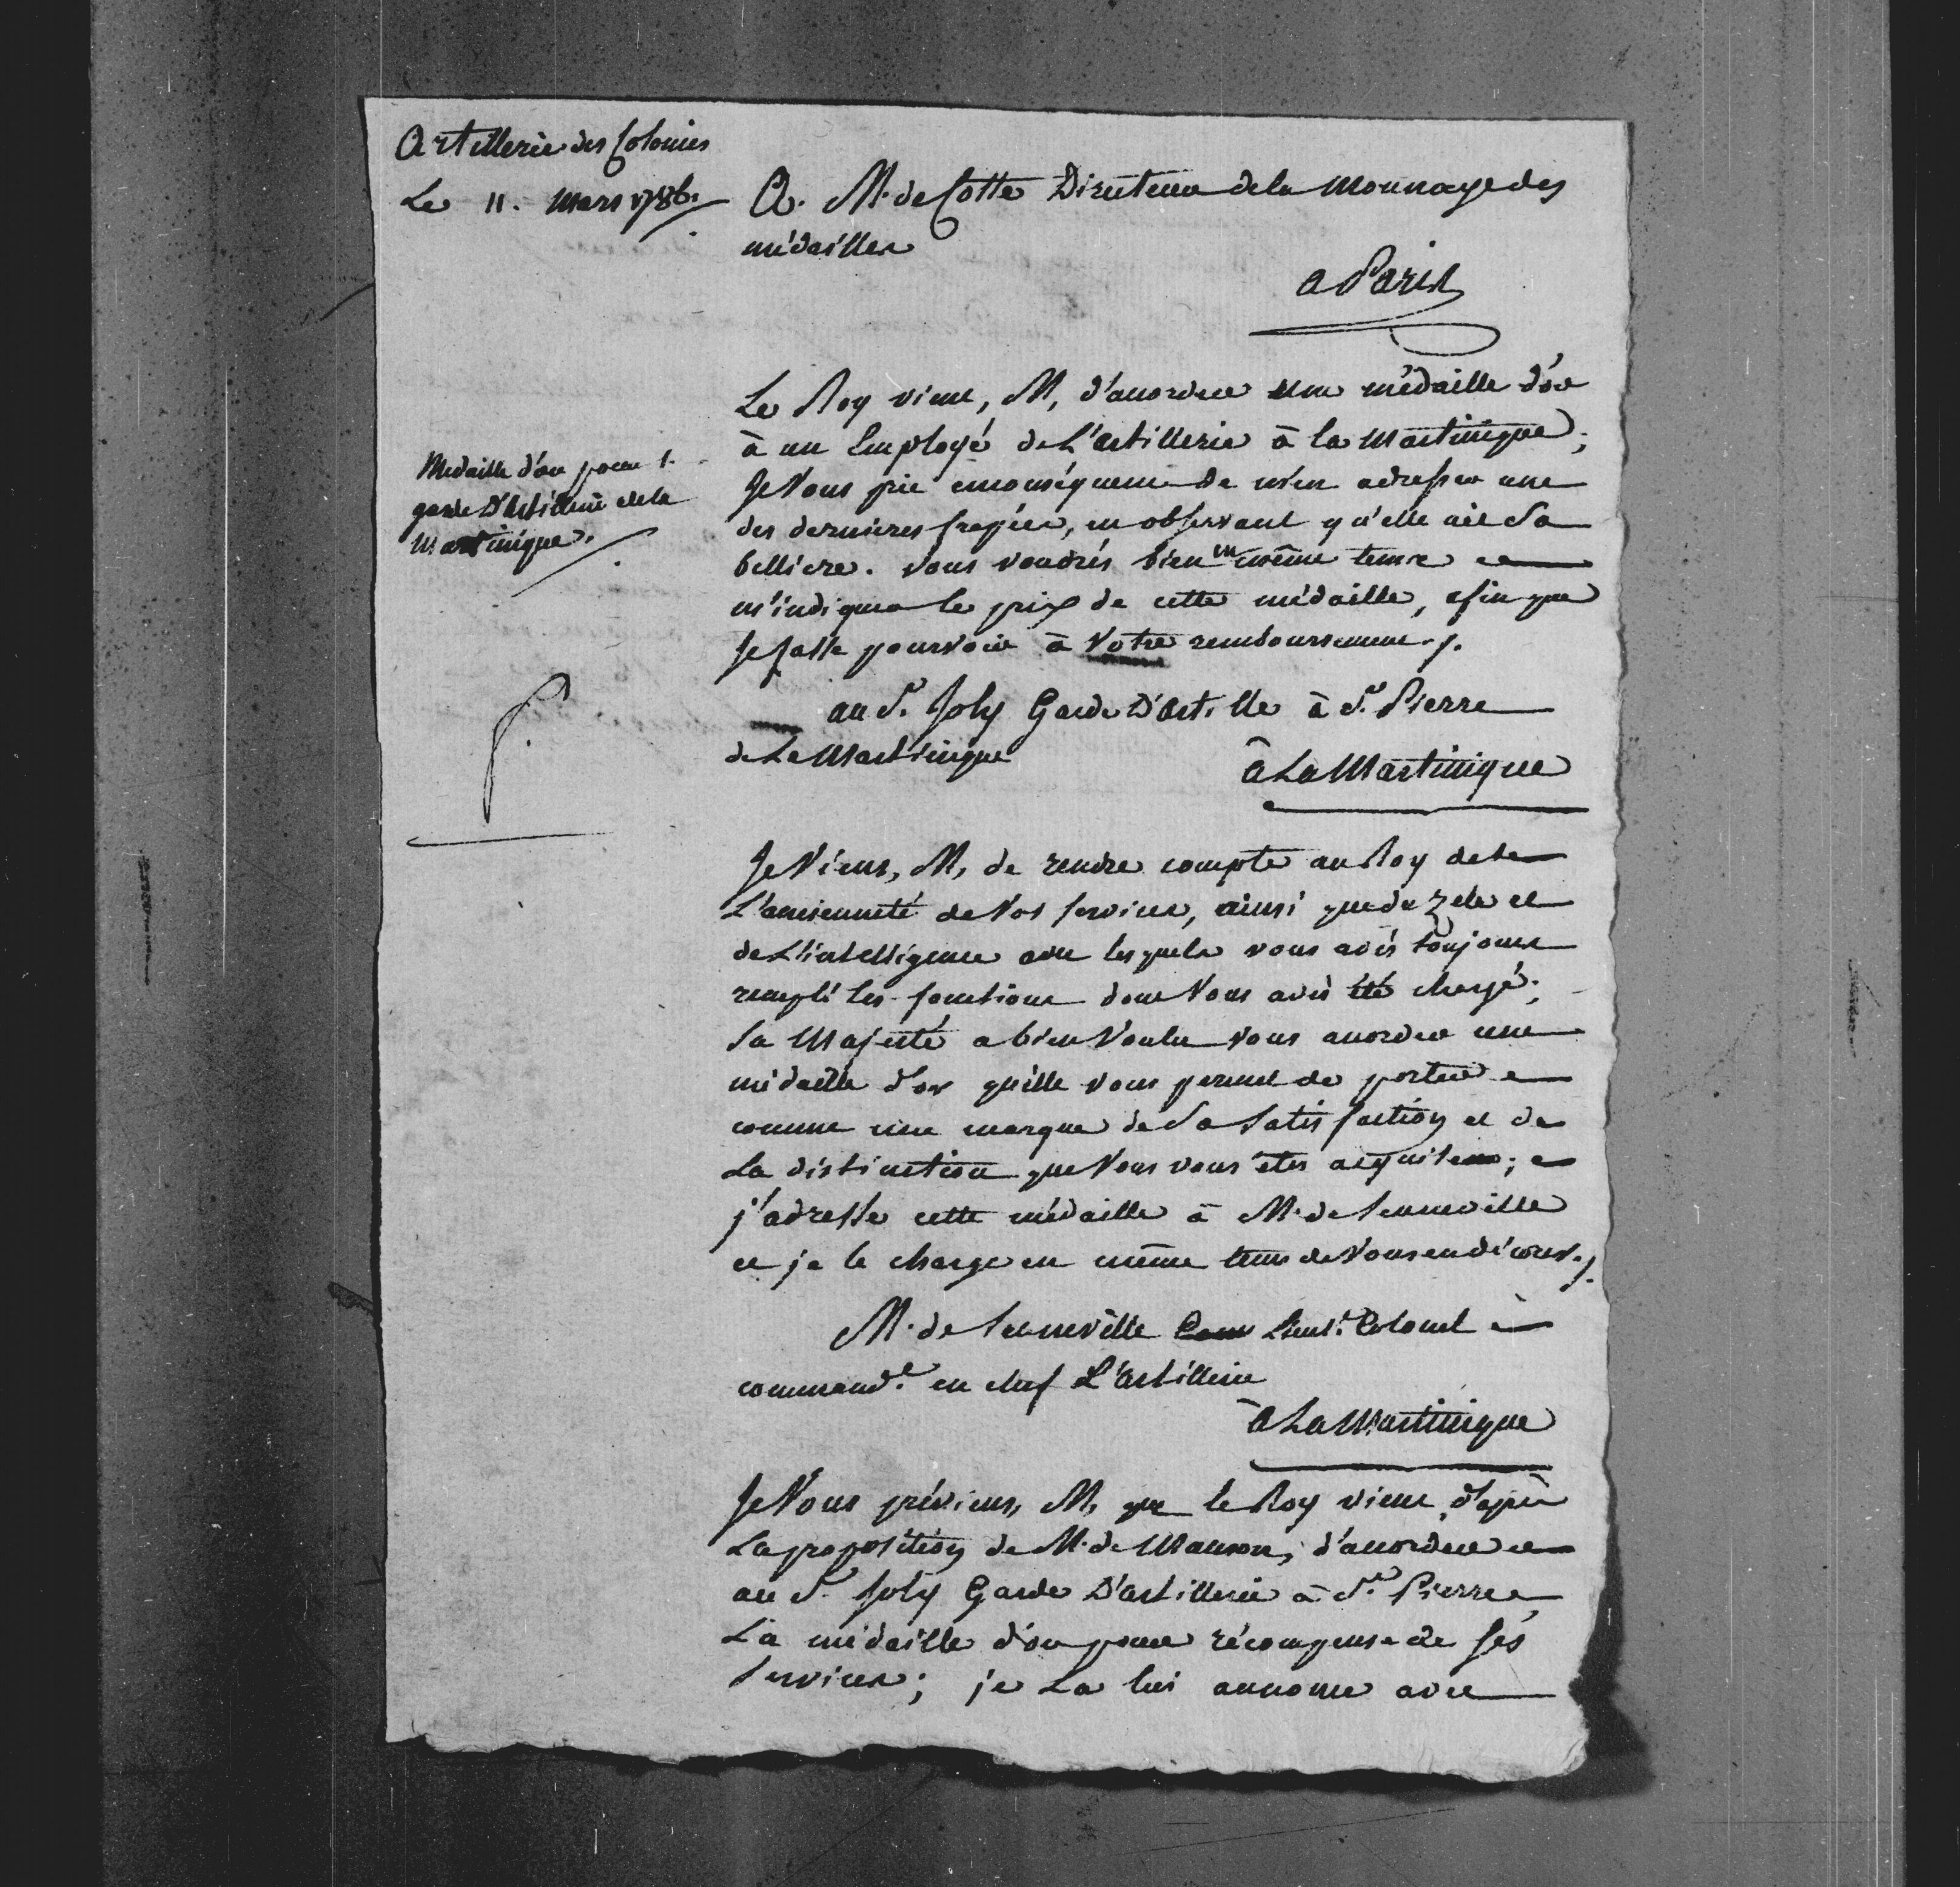 Artillerie des Colonies
Le 11. Mars 1786.
A. M. de Cotte Directeur de la Monnoye des
médailles
a Paris
Medaille d'or pour 1.
garde D'Artillerie de la
Martinique.
Le Roy vient, M, d'accorder une médaille d'or
à un Employé de L'artillerie à la Martinique;
Je Vous prie enconséquence de m'en adresser une
des dernieres frapées, en observant qu'elle ait Sa
belliere. vous voudrés bien en même tems
m'indiquer le prix de cette médaille, afin que
Je fasse pourvoir à Votre remboursement ./.
au S. Joly Garde D'Artille à St. Pierre
de La Martinique
à La Martinique
Je Viens, M, de rendre compte au Roy de
L'ancienneté de Vos services, ainsi que du zele et
de L'intelligence avec lesquels vous avés toujours
rempli les fonctions dont Vous avés été chargé;
Sa Majesté a bien Voulu vous accorder une
médaille d'or qu'elle vous permet de porter
comme une marque de Sa Satisfaction et de
La distinction que Vous vous êtes acquise;
j'adresse cette médaille à M. de Senneville
et je le charge en même tems de Vous en décorer ./.
M. de Senneville Lieut. Colonel
command.t en chef L'Artillerie
à La Martinique
Je Vous préviens, M, que le Roy vient, d'après
La proposition de M. de Manson, d'accorder
au S. Joly Garde D'artillerie à St. Pierre
La médaille d'or pour récompense de ses
Services; je La lui annonce avec